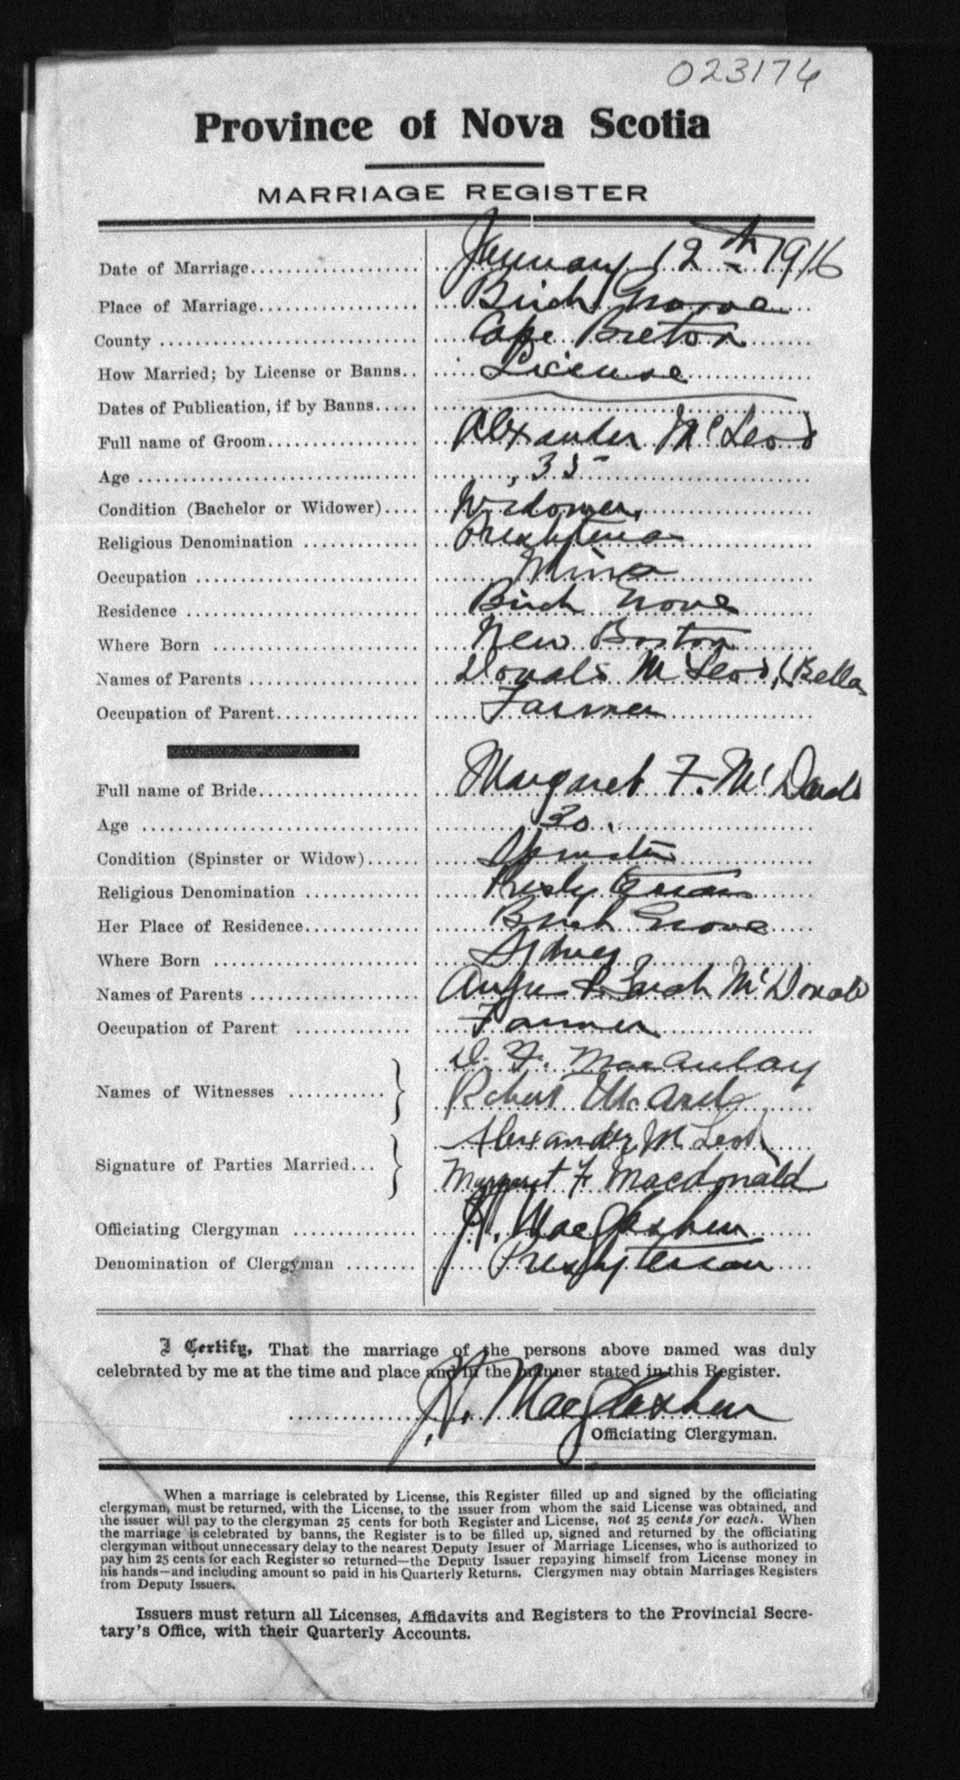 023174
Province of Nova Scotia
MARRIAGE REGISTER
Date of Marriage.................... January 12th 1916
Place of Marriage................... Birch Grove
County .............................. Cape Breton
How Married; by License or Banns.. License
Dates of Publication, if by Banns.....
Full name of Groom.................. Alexander McLeod
Age ................................. 35
Condition (Bachelor or Widower).... Widower
Religious Denomination .............. Presbyterian
Occupation .......................... Miner
Residence ........................... Birch Grove
Where Born ......................... New Boston
Names of Parents .................... Donald McLeod, (Bella
Occupation of Parent................. Farmer
Full name of Bride................... Margaret F. McDonald
Age ................................. 30.
Condition (Spinster or Widow)...... Spinster
Religious Denomination .............. Presbyterian
Her Place of Residence.............. Birch Grove
Where Born ......................... Sydney
Names of Parents .................... Angus & Sarah McDonald
Occupation of Parent ............... Farmer
D. F. MacAulay
Names of Witnesses ............
Robert
Alexander McLeod
Signature of Parties Married...
Margaret F Macdonald
Officiating Clergyman ............... MacGlashen
Denomination of Clergyman ........ Presbyterian
I Certify, That the marriage of the persons above named was duly
celebrated by me at the time and place and in the manner stated in this Register.
MacGlashen
Officiating Clergyman.
When a marriage is celebrated by License, this Register filled up and signed by the officiating
clergyman, must be returned, with the License, to the issuer from whom the said License was obtained, and
the issuer will pay to the clergyman 25 cents for both Register and License, not 25 cents for each. When
the marriage is celebrated by banns, the Register is to be filled up, signed and returned by the officiating
clergyman without unnecessary delay to the nearest Deputy Issuer of Marriage Licenses, who is authorized to
pay him 25 cents for each Register so returned—the Deputy Issuer repaying himself from License money in
his hands—and including amount so paid in his Quarterly Returns. Clergymen may obtain Marriages Registers
from Deputy Issuers.
Issuers must return all Licenses, Affidavits and Registers to the Provincial Secre-
tary's Office, with their Quarterly Accounts.